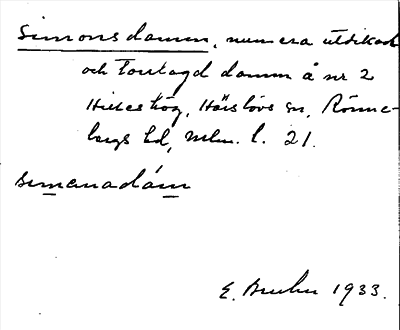 Simonsdamm, numera utdikad
och torrlagd damm å nr 2
Hilleshög, Härslövs sn, Rönne-
bergs hd, Mlm. l. 21.
simanadám
E. Bruhn 1933.